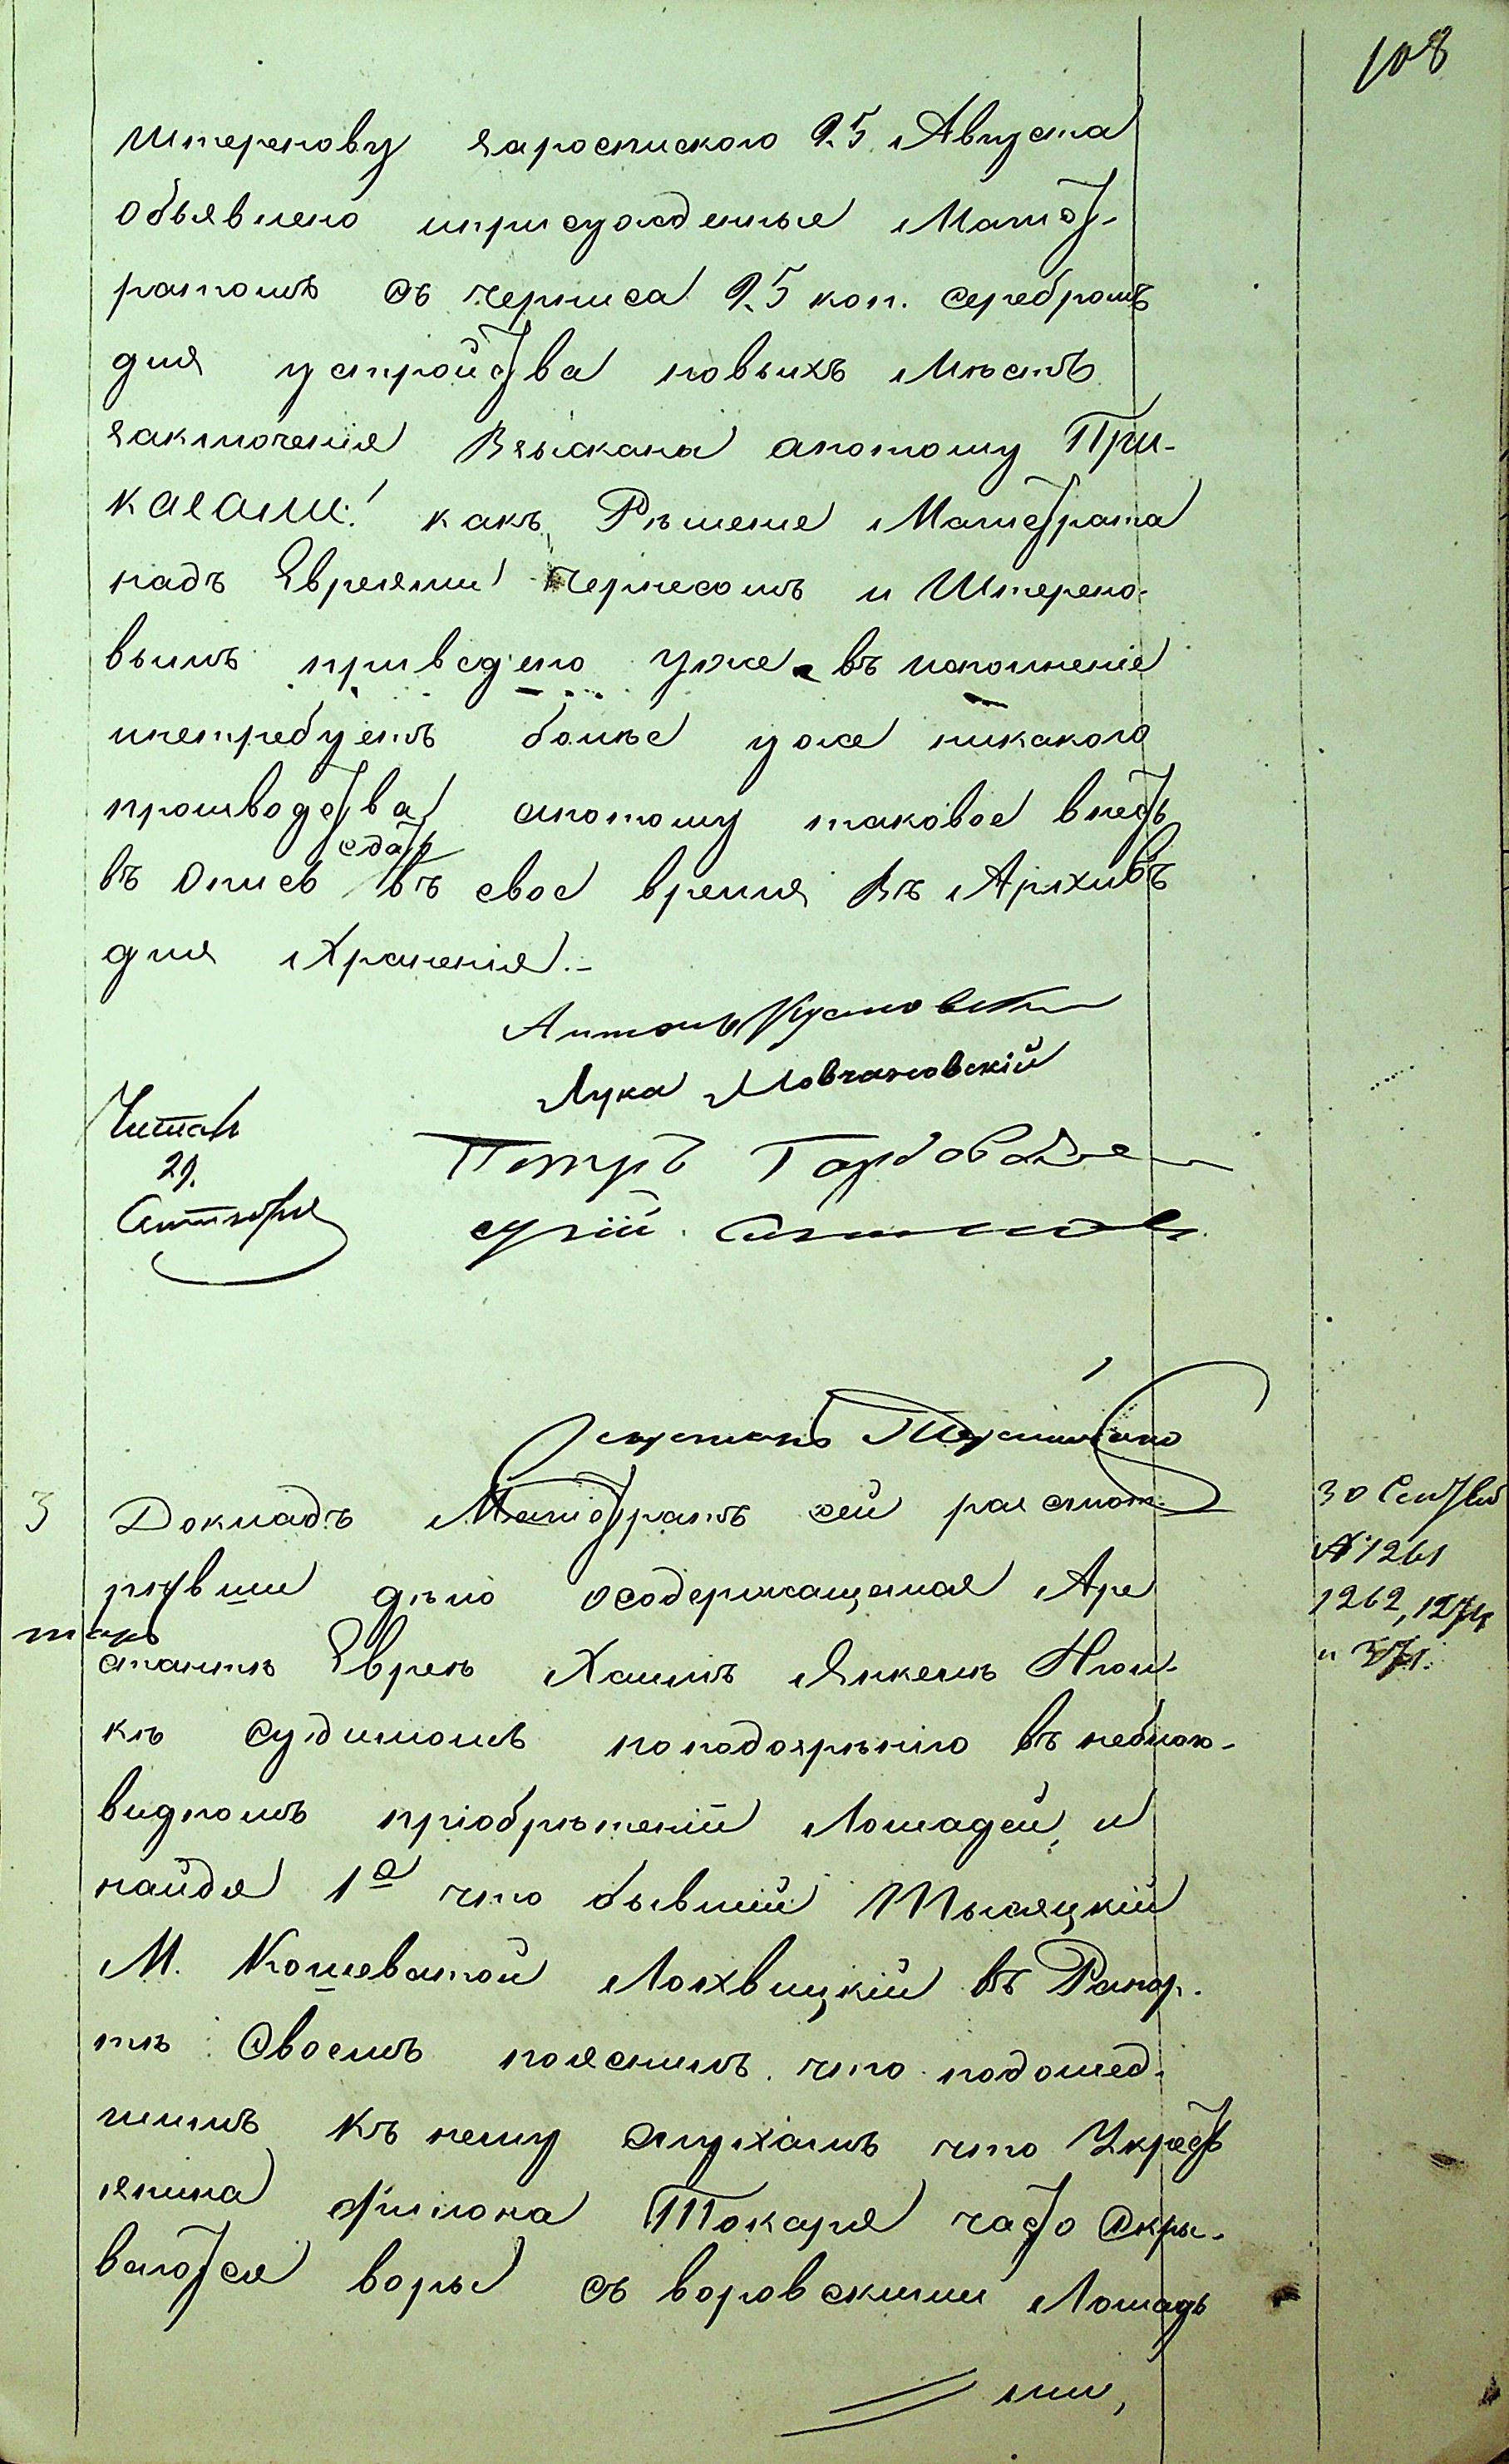 108
Штеренову зароспискою 25 Августа
объявлено иприсужденные Магист-
ратомъ съ черниса 25 коп. серебромъ
для устройства новыхъ мѣстъ
заключенія Взысканы апотому При-
казали: какъ Рѣшеніе Магистрата
надъ Евреями Чернесомъ и Штерено-
вымъ приведено уже въ исполненіе
инетребуетъ болѣе уже никакого
производства апотому таковое внесть
сдать
въ опись въ свое время въ Архивъ
для Храненія.-
Антонъ
Лука Мовчановскій
Петръ
Читалъ
29.
Сентября
3
Докладъ Магистратъ сей разсмот-
рѣвши дѣло осодержащемся Аре
станте Еврее Хаимѣ Янкелѣ Нюн-
кѣ судимомъ поподозрѣнію въ неблаго-
видномъ пріобрѣтеніи Лошадей, и
найдя 1е что бывшій Тысяцкій
М. Кошеватой Лохвицкій въ Рапор-
тѣ своемъ пояснилъ что подошед-
шимъ къ нему слухамъ что Укрест
янина Филона Токаря часто скры-
ваются воры съ воровскими Лошадь
ми,
30 Сентяб
№ 1261
1262, 1274
и 371.